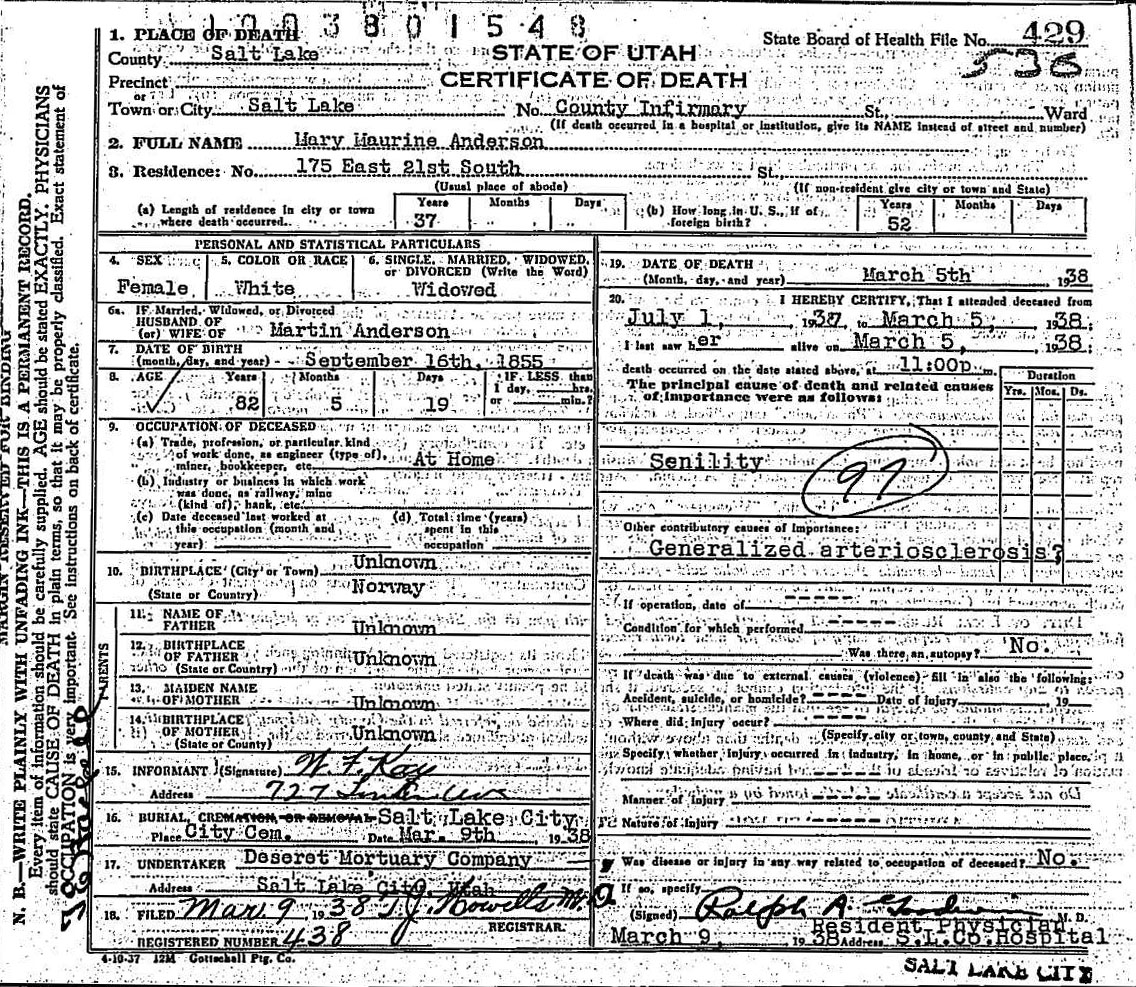 1003801548
1. PLACE OF DEATH
County Salt Lake
STATE OF UTAH
CERTIFICATE OF DEATH
State Board of Health File No. 429
Precinct
or
Town or City Salt Lake No. County Infirmary St., Ward
(If death occurred in a hospital or institution, give its NAME instead of street and number)
2. FULL NAME Mary Maurine Anderson
3. Residence: No. 175 East 21st South St.,
(Usual place of abode) (If non-resident give city or town and State)
(a) Length of residence in city or town where death occurred. Years 37 Months Days
(b) How long in U. S., if of foreign birth? Years 52 Months Days
PERSONAL AND STATISTICAL PARTICULARS
4. SEX Female
5. COLOR OR RACE White
6. SINGLE, MARRIED, WIDOWED, or DIVORCED (Write the Word) Widowed
6a. IF Married, Widowed, or Divorced
HUSBAND OF
(or) WIFE OF Martin Anderson
7. DATE OF BIRTH
(month, day, and year) September 16th, 1855
8. AGE Years 82 Months 5 Days 19 IF LESS than 1 day, hrs. or min.?
9. OCCUPATION OF DECEASED
(a) Trade, profession, or particular kind
of work done, as engineer (type of),
miner, bookkeeper, etc. At Home
(b) Industry or business in which work
was done, as railway, mine
(kind of), bank, etc.
(c) Date deceased last worked at
this occupation (month and
year)
(d) Total time (years)
spent in this
occupation
10. BIRTHPLACE (City or Town) Unknown
(State or Country) Norway
PARENTS
11. NAME OF
FATHER Unknown
12. BIRTHPLACE
OF FATHER Unknown
(State or Country)
13. MAIDEN NAME
OF MOTHER Unknown
14. BIRTHPLACE
OF MOTHER Unknown
(State or Country)
15. INFORMANT (Signature) W. F. Kay
Address 727
16. BURIAL, CREMATION OR REMOVAL Salt Lake City
Place City Cem. Date Mar. 9th, 1938
17. UNDERTAKER Deseret Mortuary Company
Address Salt Lake City, Utah
18. FILED Mar 9 1938 T. J. Howells M.D.
REGISTRAR.
REGISTERED NUMBER 438
4-19-37 12M Gottschall Ptg. Co.
19. DATE OF DEATH
(Month, day, and year) March 5th 1938
20. I HEREBY CERTIFY, That I attended deceased from
July 1, 1937 to March 5, 1938;
I last saw her alive on March 5, 1938;
death occurred on the date stated above, at 11:00p m.
The principal cause of death and related causes
of importance were as follows:
Duration
Yrs. Mos. Ds.
Senility
97
Other contributory causes of importance:
Generalized arteriosclerosis?
If operation, date of -----
Condition for which performed -----
Was there an autopsy? No.
If death was due to external causes (violence) fill in also the following:
Accident, suicide, or homicide? ---- Date of injury 19
Where did injury occur? ----
(Specify city or town, county and State)
Specify whether injury occurred in industry, in home, or in public place.
Manner of injury -----
Nature of injury -----
Was disease or injury in any way related to occupation of deceased? No.
If so, specify
(Signed) Ralph A. Goodwin M. D.
Resident Physician
March 9, 1938 Address S.L.Co.Hospital
SALT LAKE CITY
MARGIN RESERVED FOR BINDING
N. B.—WRITE PLAINLY WITH UNFADING INK—THIS IS A PERMANENT RECORD.
Every item of information should be carefully supplied. AGE should be stated EXACTLY. PHYSICIANS
should state CAUSE OF DEATH in plain terms, so that it may be properly classified. Exact statement of
OCCUPATION is very important. See instructions on back of certificate.